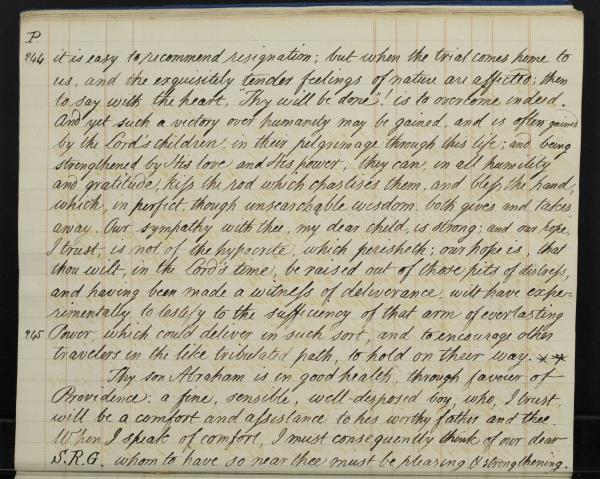 P.
244 it is easy to recommend resignation; but when the trial comes home to
us, and the exquisitely tender feelings of nature are affected; then
to say with the heart, "Thy will be done"! is to overcome indeed.
And yet such a victory over humanity may be gained, and is often gained
by the Lord's children, in their pelgrimage through this life; and being
strengthened by His love and His power, they can, in all humility
and gratitude, kiss the rod which chastises them, and bless the hand,
which, in perfect, though unsearchable wisdom, both gives and takes
away. Our sympathy with thee, my dear child, is strong; and our hope,
I trust, is not of the hypocrite, which perisheth; our hope is, that
thou wilt, in the Lord's time, be raised out of those pits of distress,
and having been made a witness of deliverance, wilt have expe-
rimentally to testify to the sufficiency of that arm of everlasting
245 Power, which could deliver in such sort, and to encourage other
travelers in the like tribulated path, to hold on their way. * *
Thy son Abraham is in good health, through favour of
Providence; a fine, sensible, well disposed boy, who, I trust,
will be a comfort and assistance to his worthy father and thee.
When I speak of comfort, I must consequently think of our dear
S.R.G. whom to have so near thee must be pleasing & strengthening.